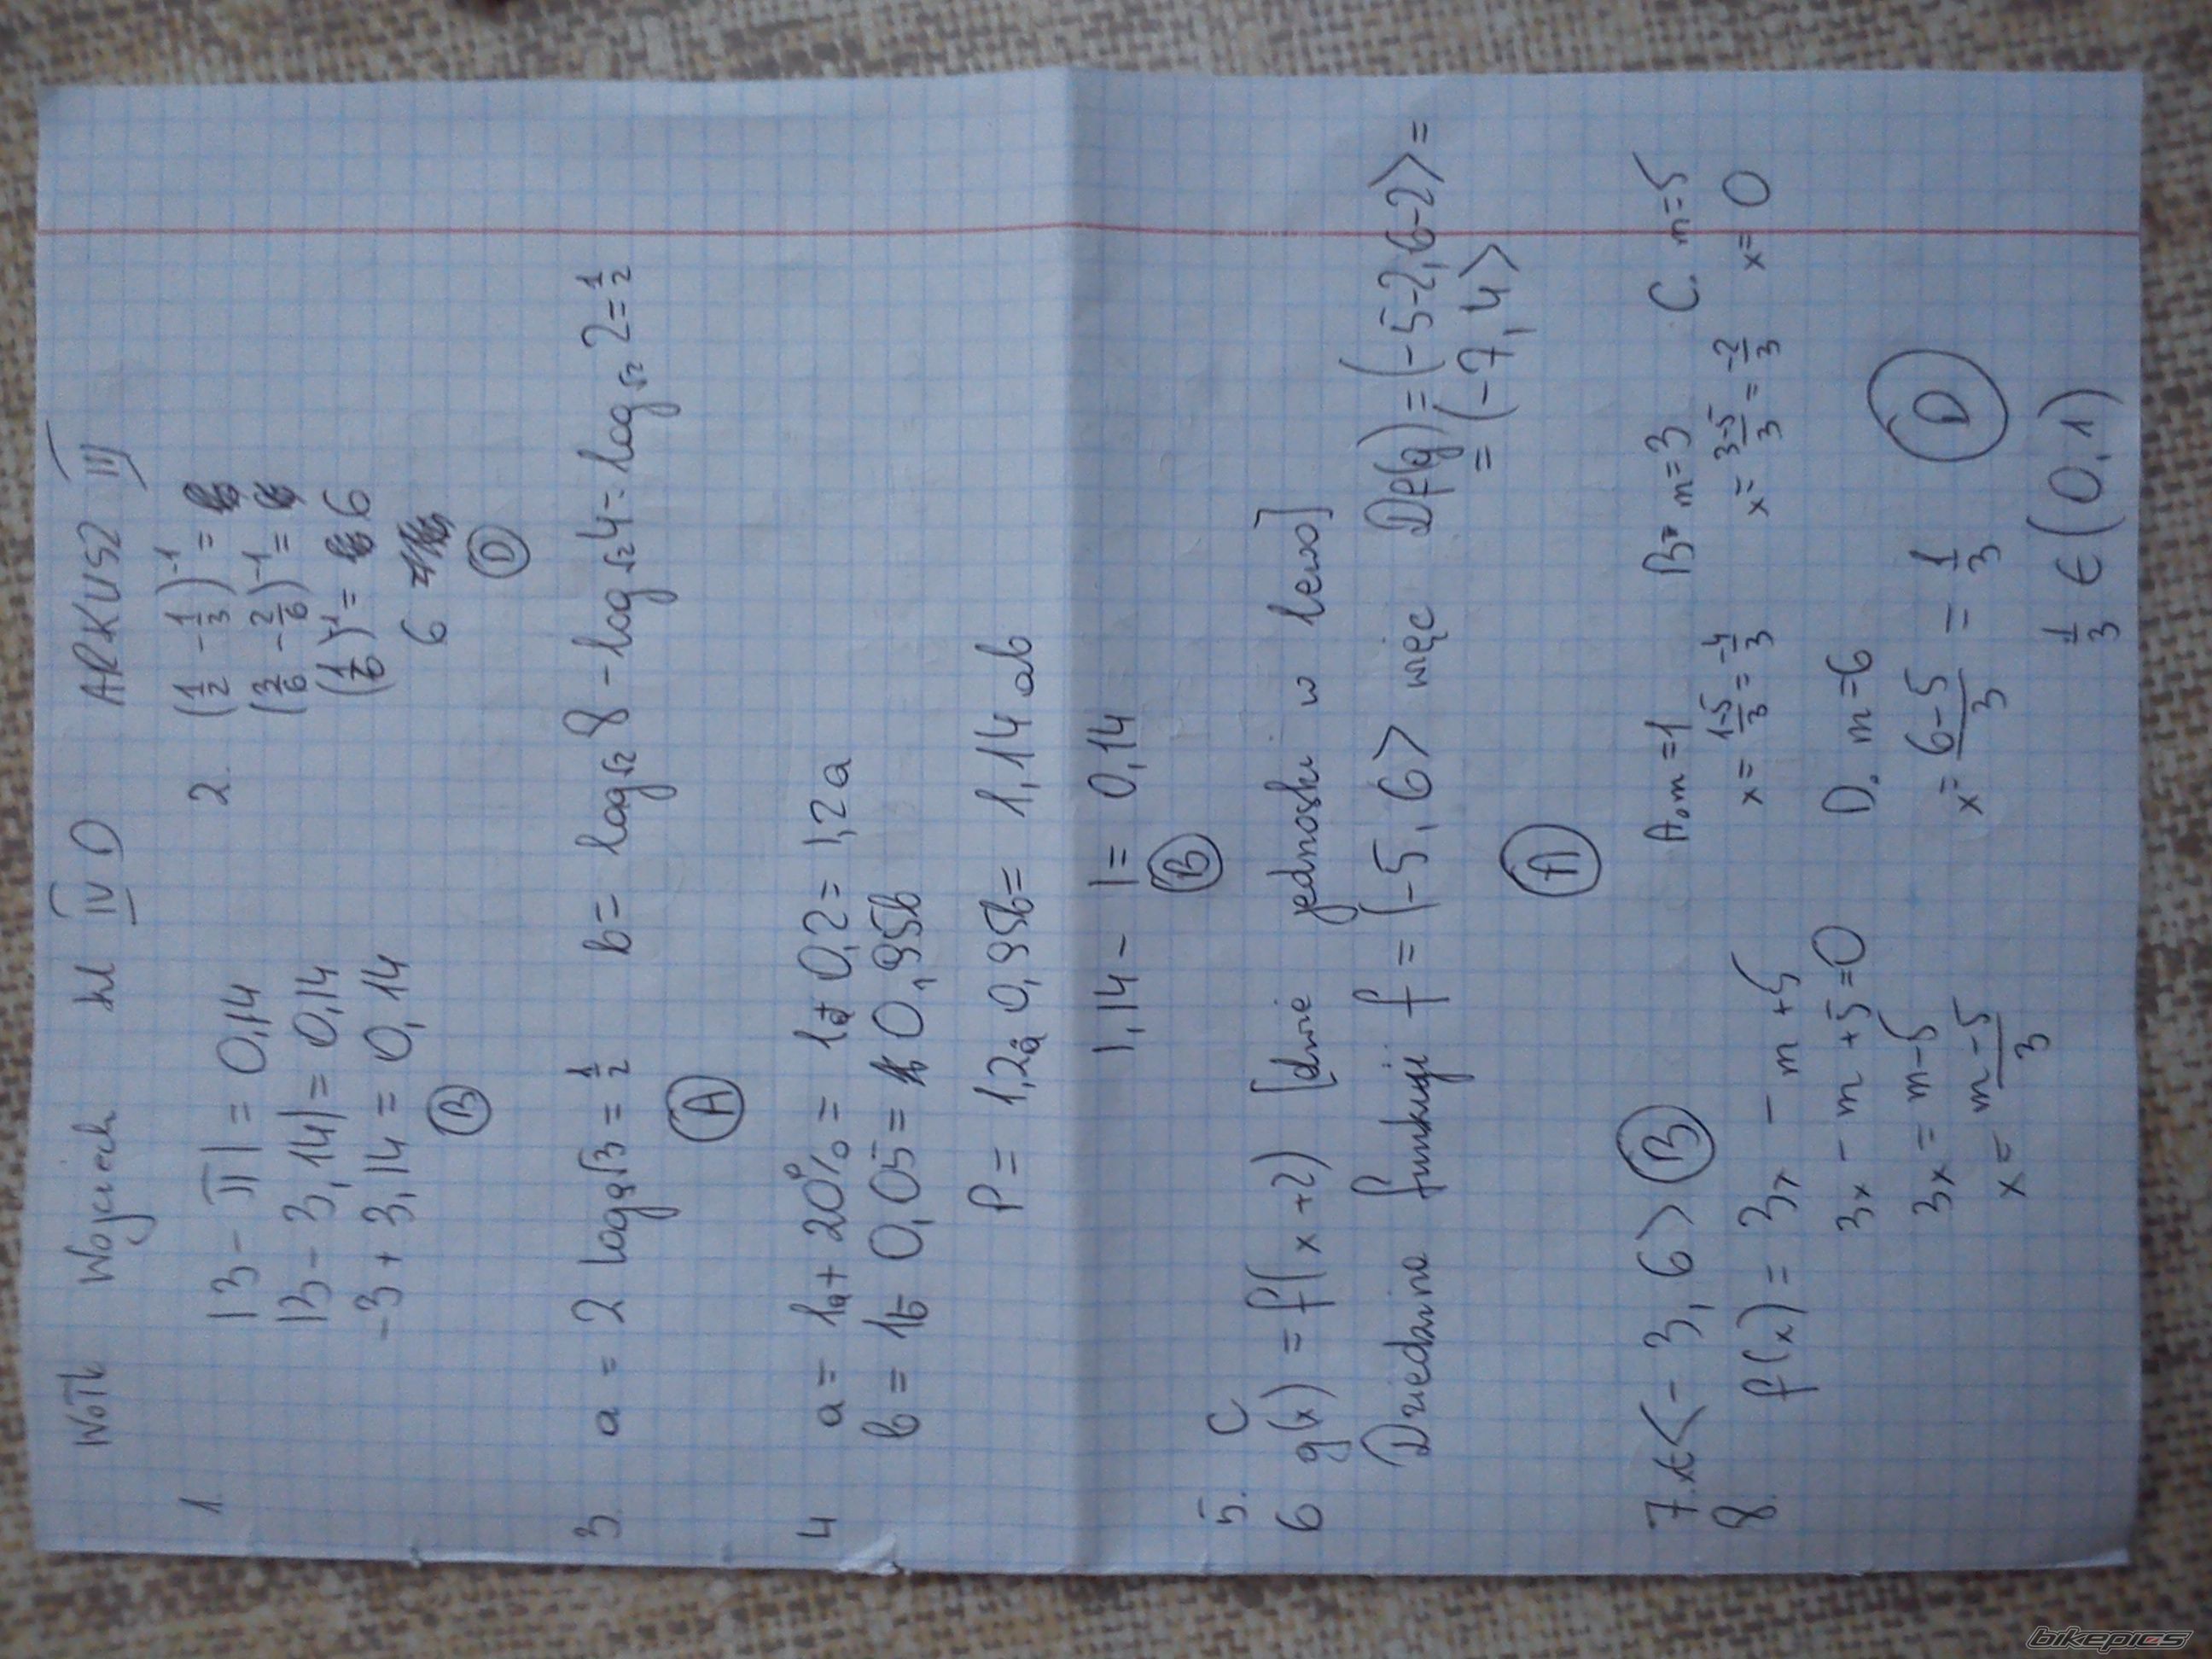 Woth Wojciech kl IV D ARKUSZ III
1. |3 - π| = 0,14
|3 - 3,14| = 0,14
-3 + 3,14 = 0,14
B
2. (1/2 - 1/3)^-1 =
(3/6 - 2/6)^-1 =
(1/6)^-1 = 6
6
D
3. a = 2 log₉√3 = 1/2 b = log√2 8 - log√2 4 = log√2 2 = 1/2
A
4 a = 1a + 20% = 1a + 0,2 = 1,2a
b = 1b - 0,05 = 0,95b
P = 1,2a 0,95b = 1,14ab
1,14 - 1 = 0,14
B
5. C
6 g(x) = f(x+2) [dwie jednostki w lewo]
Dziedzina funkcji f = (-5, 6> więc Df(g) = (-5-2, 6-2> =
= (-7, 4>
A
7. x∈<-3, 6> B
8. f(x) = 3x - m + 5
3x - m + 5 = 0
3x = m - 5
x = m-5/3
A. m = 1
x = 1-5/3 = -4/3
B. m = 3
x = 3-5/3 = -2/3
C. m = 5
x = 0
D. m = 6
x = 6-5/3 = 1/3
D
1/3 ∈ (0, 1)
bikepics